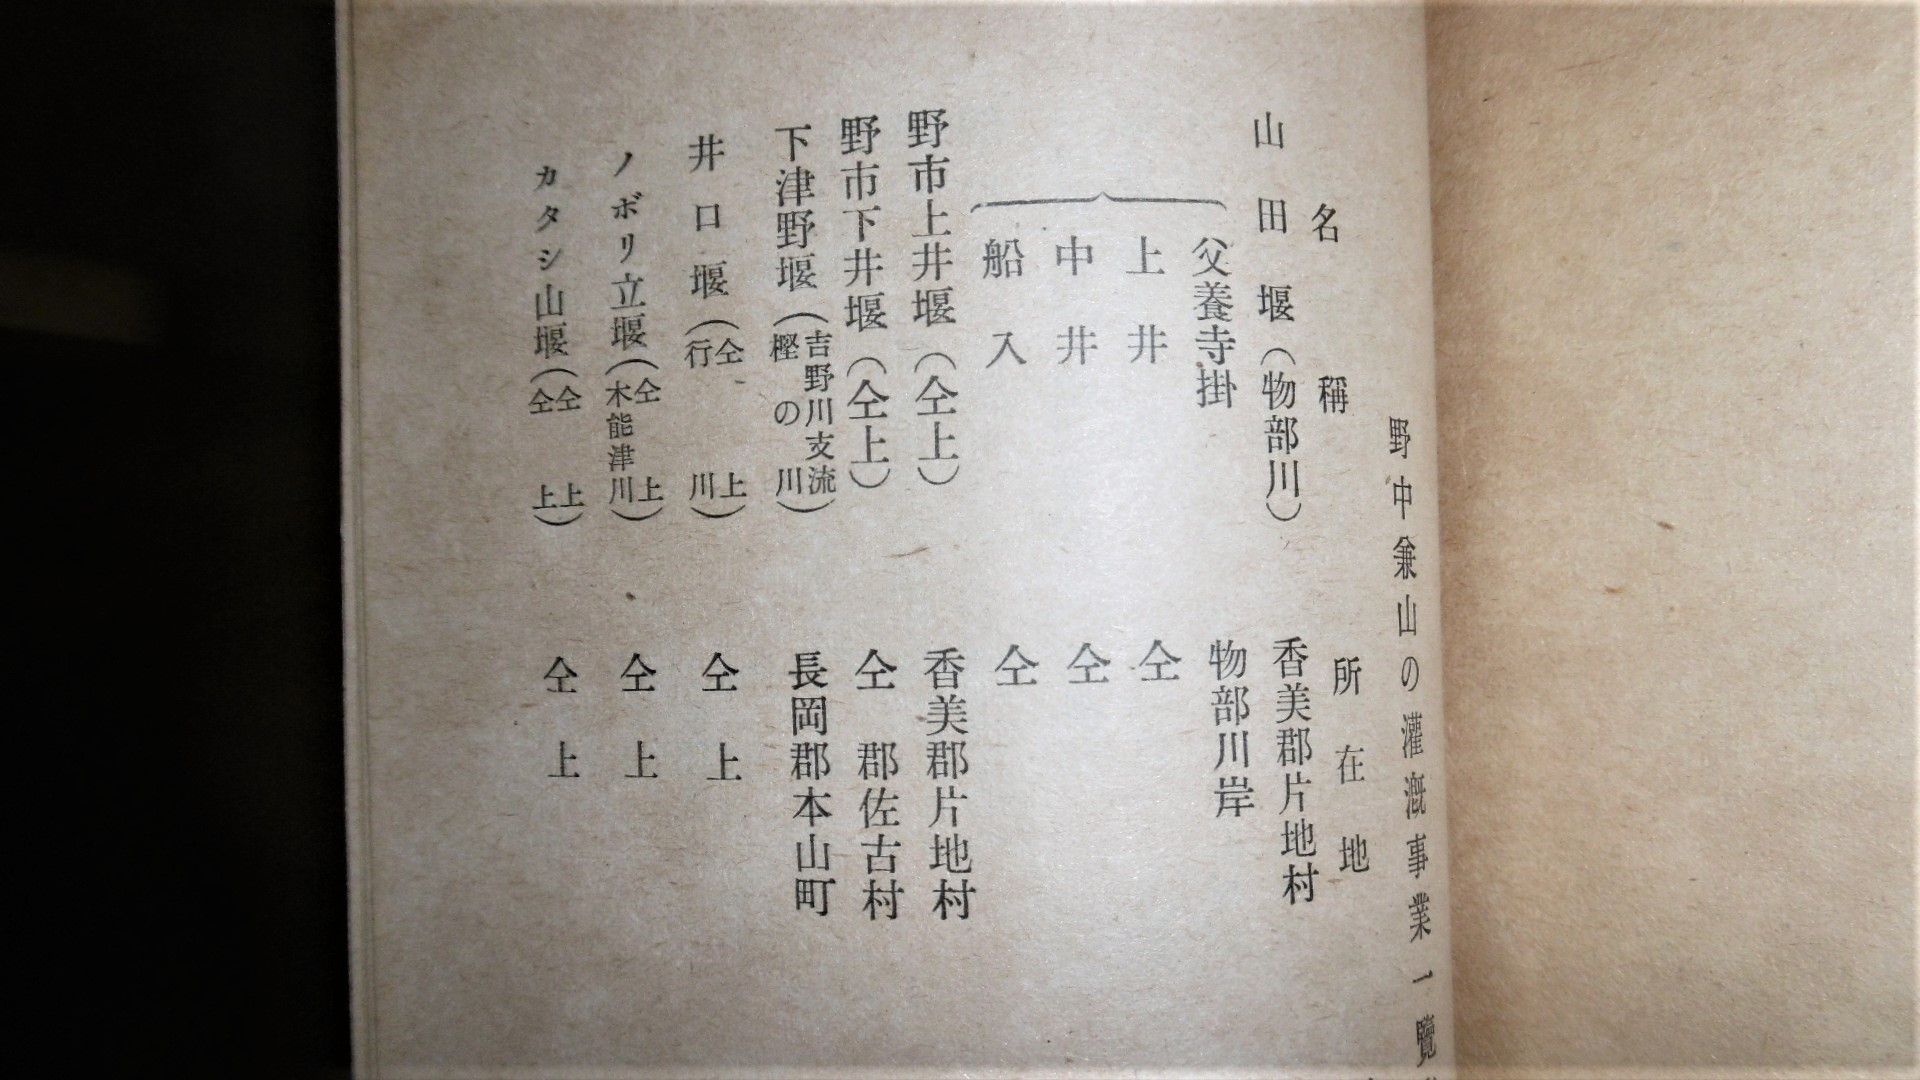 野中兼山の灌漑事業一覽
名稱 所在地
山田堰(物部川) 香美郡片地村
父養寺掛 物部川岸
上井 仝
中井 仝
船入 仝
野市上井堰(仝上) 香美郡片地村
野市下井堰(仝上) 仝郡佐古村
下津野堰(吉野川支流樫の川) 長岡郡本山町
井口堰(仝上行川) 仝上
ノボリ立堰(仝上木能津川) 仝上
カタシ山堰(仝上仝上) 仝上